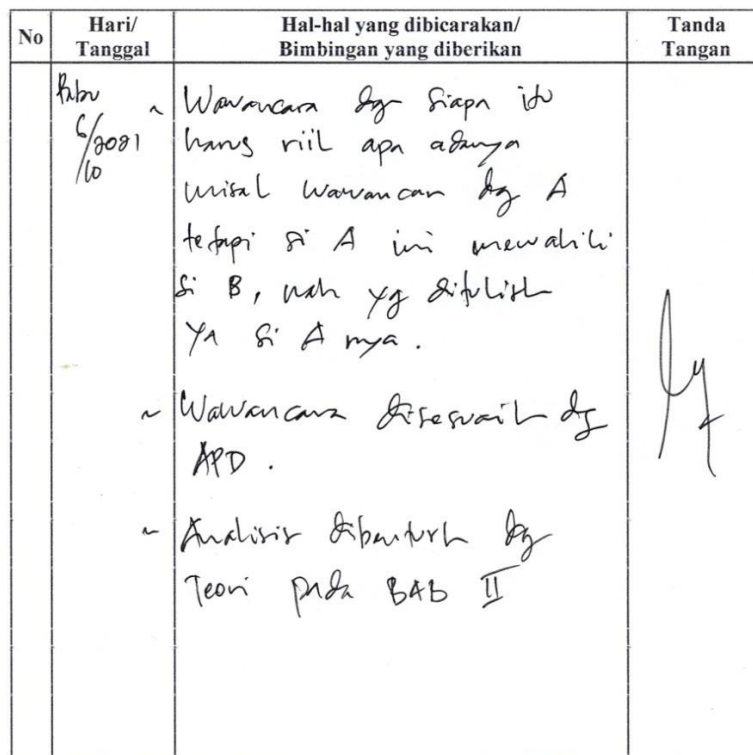 No
Hari/
Tanggal
Hal-hal yang dibicarakan/
Bimbingan yang diberikan
Tanda
Tangan
Rabu
6/2021
/10
~ Wawancara dg siapa itu
harus riil apa adanya
misal wawancara dg A
tetapi si A ini mewakili
si B, nah yg ditulish
ya si A nya.
~ Wawancara disesuaik dg
APD.
~ Analisis dibenturk dg
Teori pada BAB II